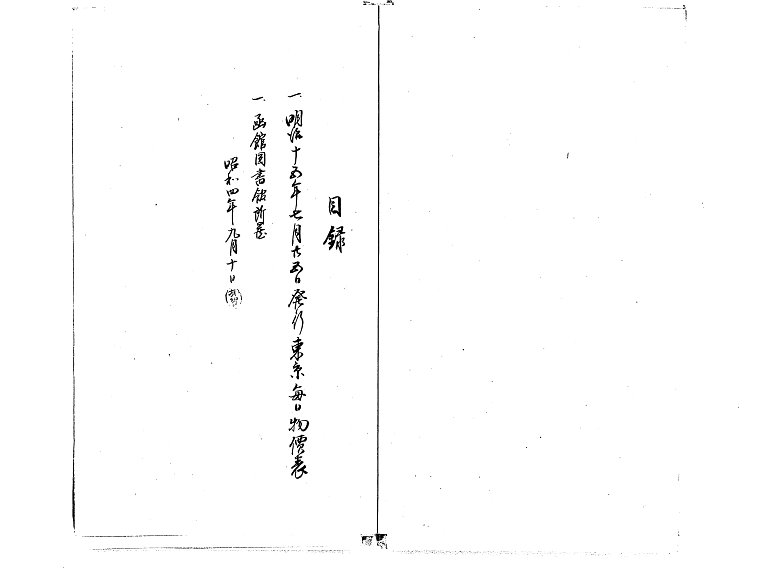 目録
一、明治十五年七月廿五日発行東京毎日物價表
一、函館図書館所蔵
昭和四年九月十日